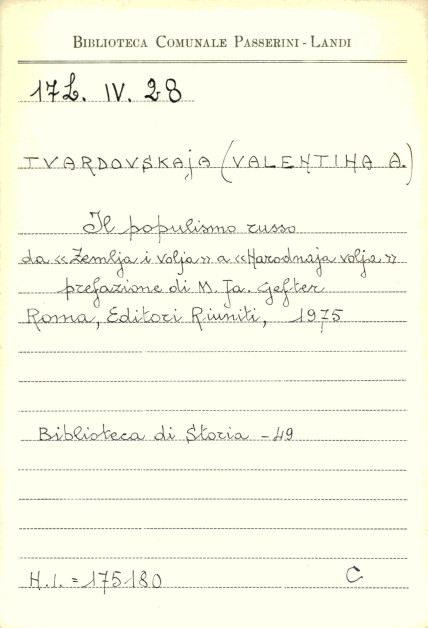 BIBLIOTECA COMUNALE PASSERINI - LANDI
17L. IV. 28
TVARDOVSKAJA (VALENTINA A.)
Il populismo russo
da «Zemlja i volja» a «Narodnaja volja»
prefazione di M. Ja. Gefter
Roma, Editori Riuniti, 1975
Biblioteca di Storia - 49
H.I. = 175180 C